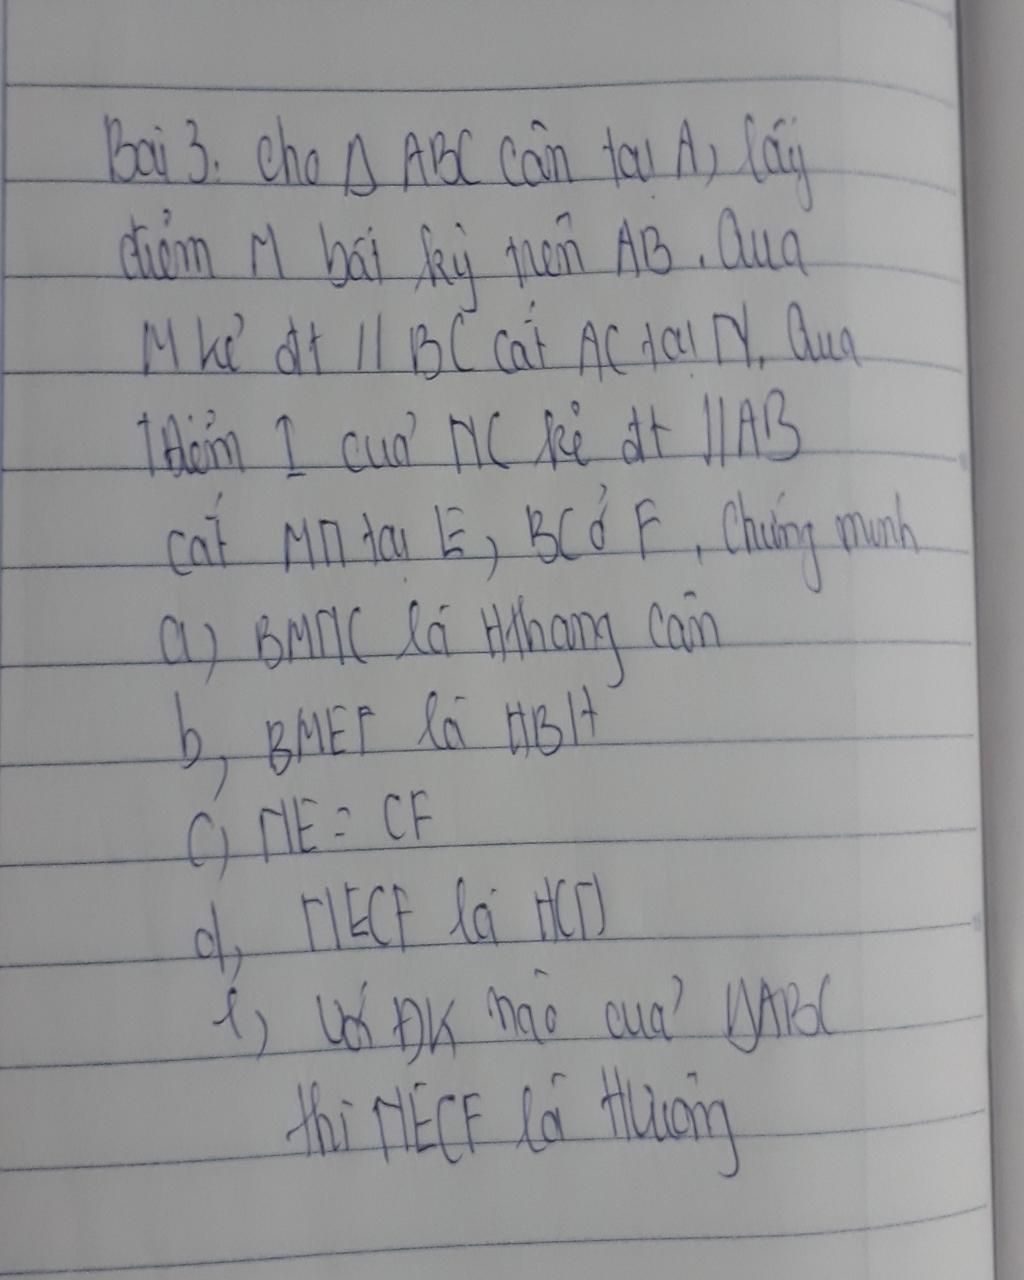 Bài 3. Cho Δ ABC cân tại A, lấy
điểm M bất kỳ trên AB. Qua
M kẻ đt // BC cắt AC tại N. Qua
Tđiểm I của NC kẻ đt // AB
cắt MN tại E, BC ở F. Chứng minh
a) BMNC là Hthang cân
b, BMEF là HBH
c) NE = CF
d, NECF là HCN
f) Với ĐK nào của ΔABC
thì NECF là HVuông